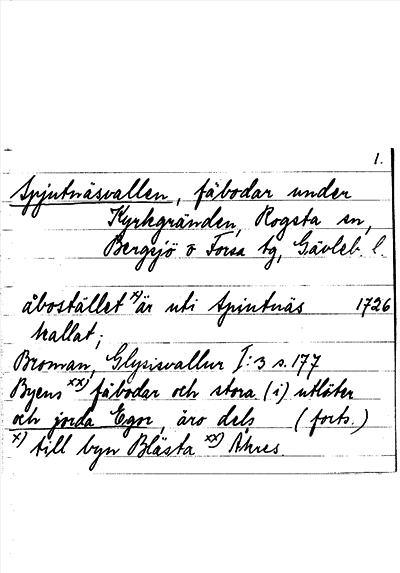 1.
Spjutnäsvallen, fäbodar under
Kyrkgränden, Rogsta sn,
Bergsjö o Forsa tg, Gävleb. l.
åbostället x) är uti Spjutnäs 1726
kallat;
Broman, Glysisvallur I:3 s. 177
Byens xx) fäbodar och stora (i) utlöter
och jorda Egor, äro dels (forts.)
x) till byn Blästa xx) Åkres.